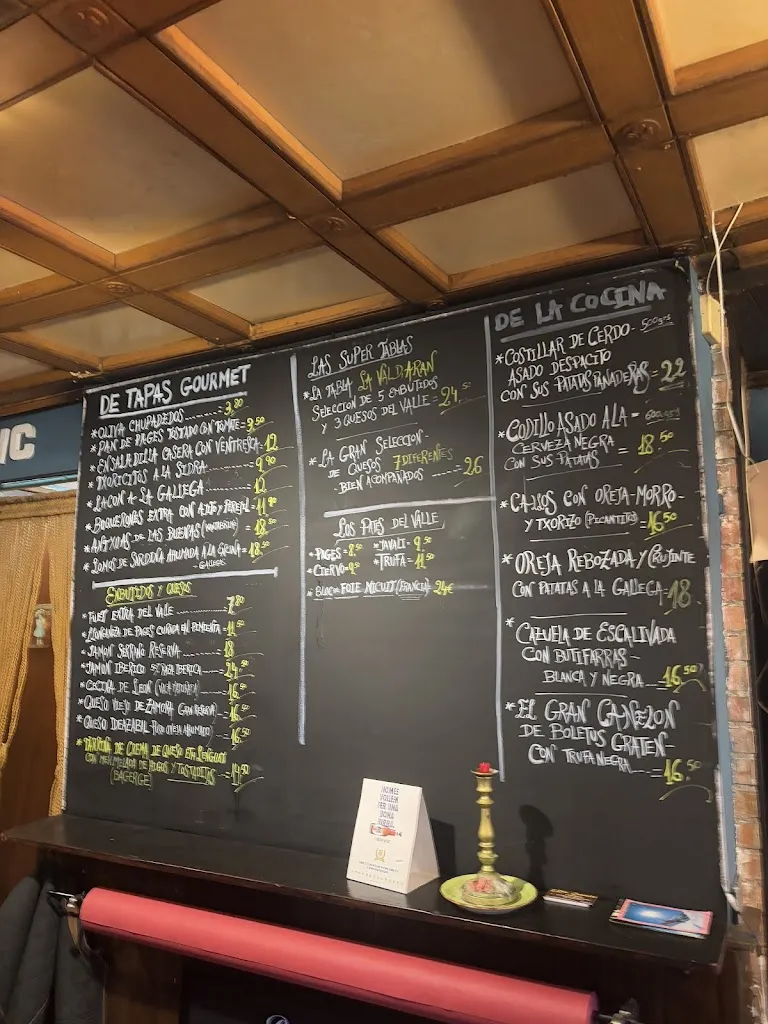 IC
DE TAPAS GOURMET
* OLIVA CHUPADEDOS 3,80
* PAN DE PAGES TOSTADO CON TOMATE = 3,50
* ENSALADILLA CASERA CON VENTRESCA = 12
* TXORICITOS A LA SIDRA 9,90
* LACON A LA GALLEGA 12
* BOQUERONES EXTRA CON AJO Y PEREJIL
* DE LAS BUENAS 18,50
* LOMOS DE SARDINA AHUMADA A LA = 18,50
GALLEGAS
EMBUTIDOS Y QUESOS
* FUET EXTRA DEL VALLE 7,80
* LLONGANIZA DE PAGES CURADA EN PIMIENTA
* JAMON SERRANO RESERVA 18
* JAMON IBERICO 24,50
* CECINA DE LEON 16,50
* QUESO VIEJO DE ZAMORA (GRAN RESERVA) 16,50
* QUESO IDEAZABAL PURO OVEJA AHUMADO 16,50
* TARRINA DE CREMA DE QUESO
CON MERMELADA DE HIGOS Y TOSTADITAS
(BAGERGE) 14,50
LAS SUPER TABLAS
* LA TABLA LA VALD'ARAN
SELECCION DE 5 EMBUTIDOS
Y 3 QUESOS DEL VALLE = 24,50
* LA GRAN SELECCION-
DE QUESOS 7 DIFERENTES
BIEN ACOMPAÑADOS 26
LOS PATES DEL VALLE
* PAGES = 8,50 * JAVALI = 9,50
* CIERVO = 9,50 * TRUFA = 11,50
* BLOC DE FOIE MICUIT (FRANCIA) = 24€
DE LA COCINA
* COSTILLAR DE CERDO - 500grs
ASADO DESPACITO
CON SUS PATATAS PANADERAS = 22
* CODILLO ASADO A LA - 600grs
CERVEZA NEGRA
CON SUS PATATAS = 18,50
* CALLOS CON OREJA-MORRO-
Y TXORIZO (PICANTITOS) = 16,50
* OREJA REBOZADA Y CRUJIENTE
CON PATATAS A LA GALLEGA = 18
* CAZUELA DE ESCALIVADA
CON BUTIFARRAS-
BLANCA Y NEGRA 16,50
* EL GRAN CANELON
DE BOLETUS GRATEN-
CON TRUFA NEGRA = 16,50